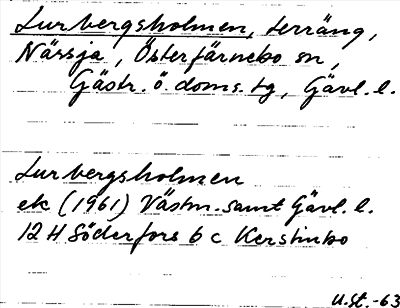 Lurbergsholmen, terräng,
Nässja, Österfärnebo sn,
Gästr. ö. doms. tg, Gävl. l.
Lurbergsholmen
ek (1961) Västm. samt Gävl. l.
12 H Söderfors 6 c Kerstinbo
U.St. -63